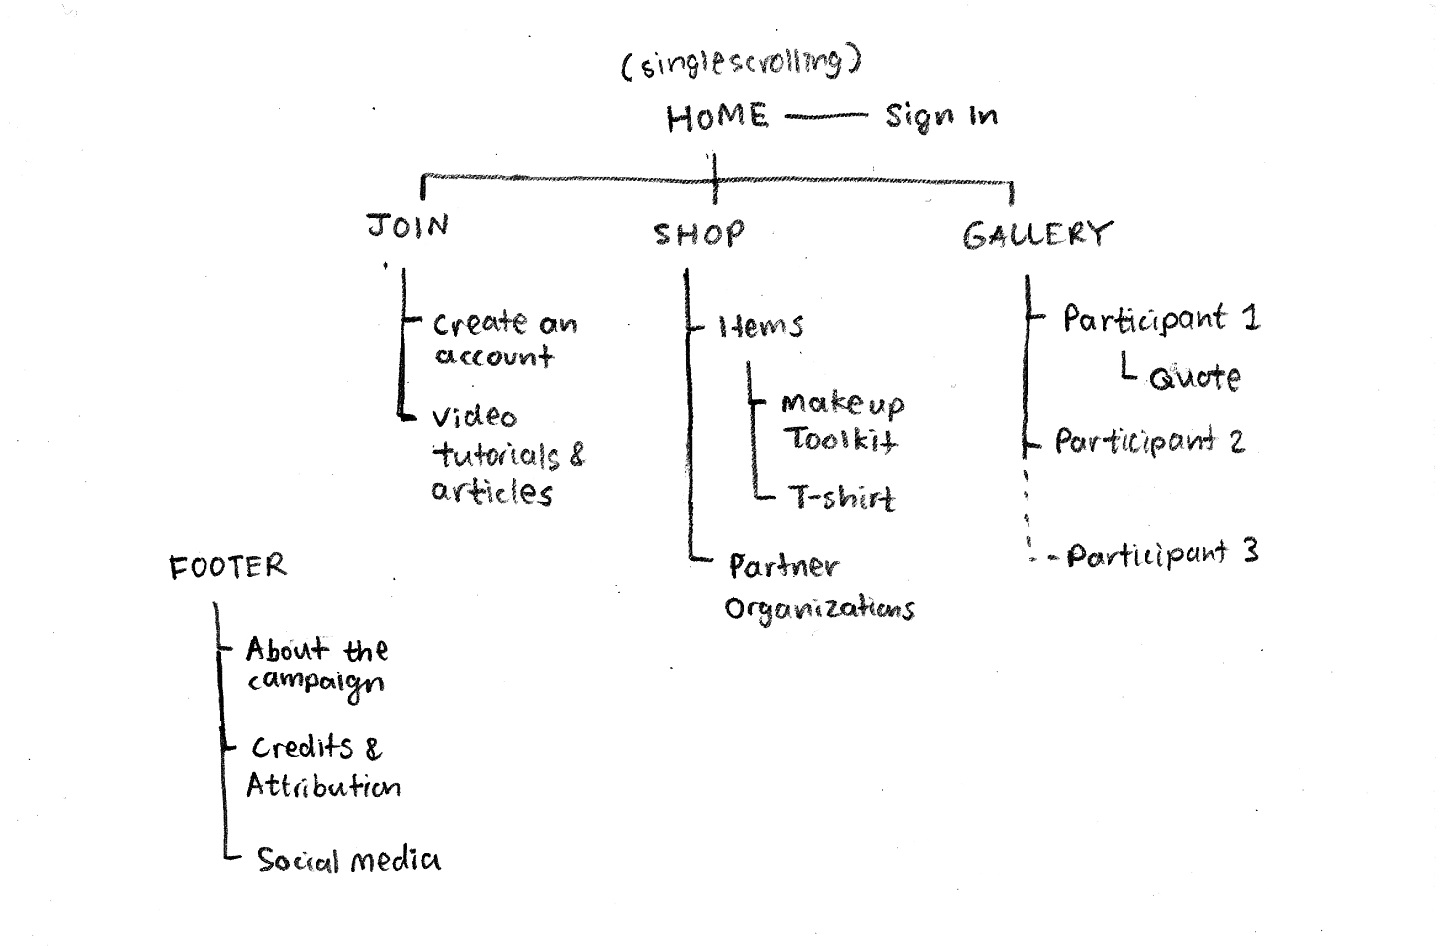 (single scrolling)
HOME Sign In
JOIN
Create an
account
Video
tutorials &
articles
SHOP
Items
Makeup
Toolkit
T-shirt
Partner
Organizations
GALLERY
Participant 1
Quote
Participant 2
Participant 3
FOOTER
About the
campaign
Credits &
Attribution
Social media